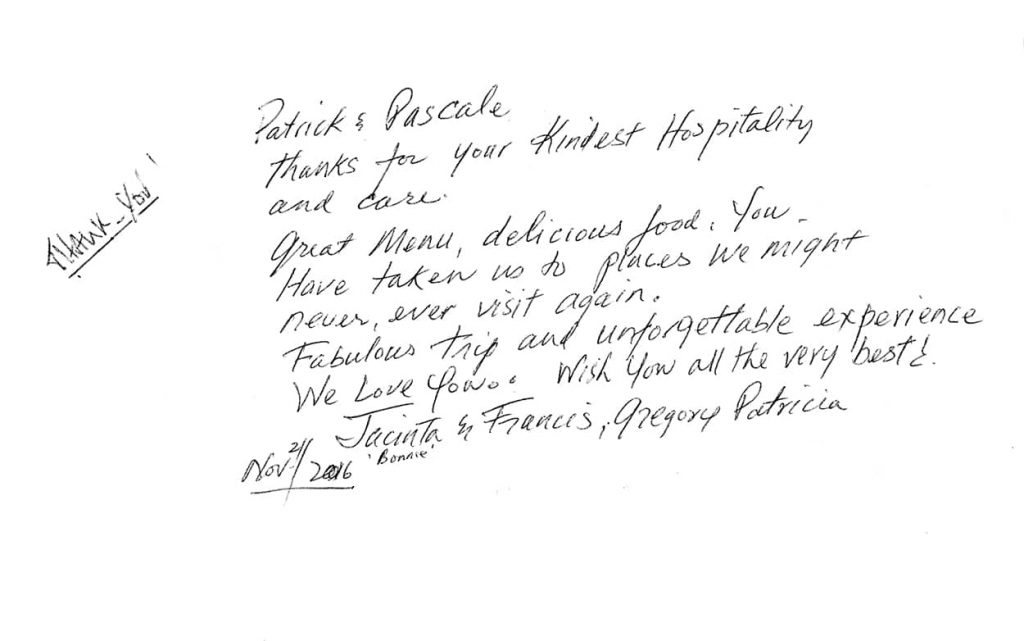 Patrick & Pascale
Thanks for your Kindest Hospitality
and care.
Great Menu, delicious food. You
Have taken us to places we might
never, ever visit again.
Fabulous trip and unforgettable experience
We Love You.. Wish You all the very best!
Jacinta & Francis, Gregory Patricia
'Bonnie'
Nov 21/2016
THANK-YOU!